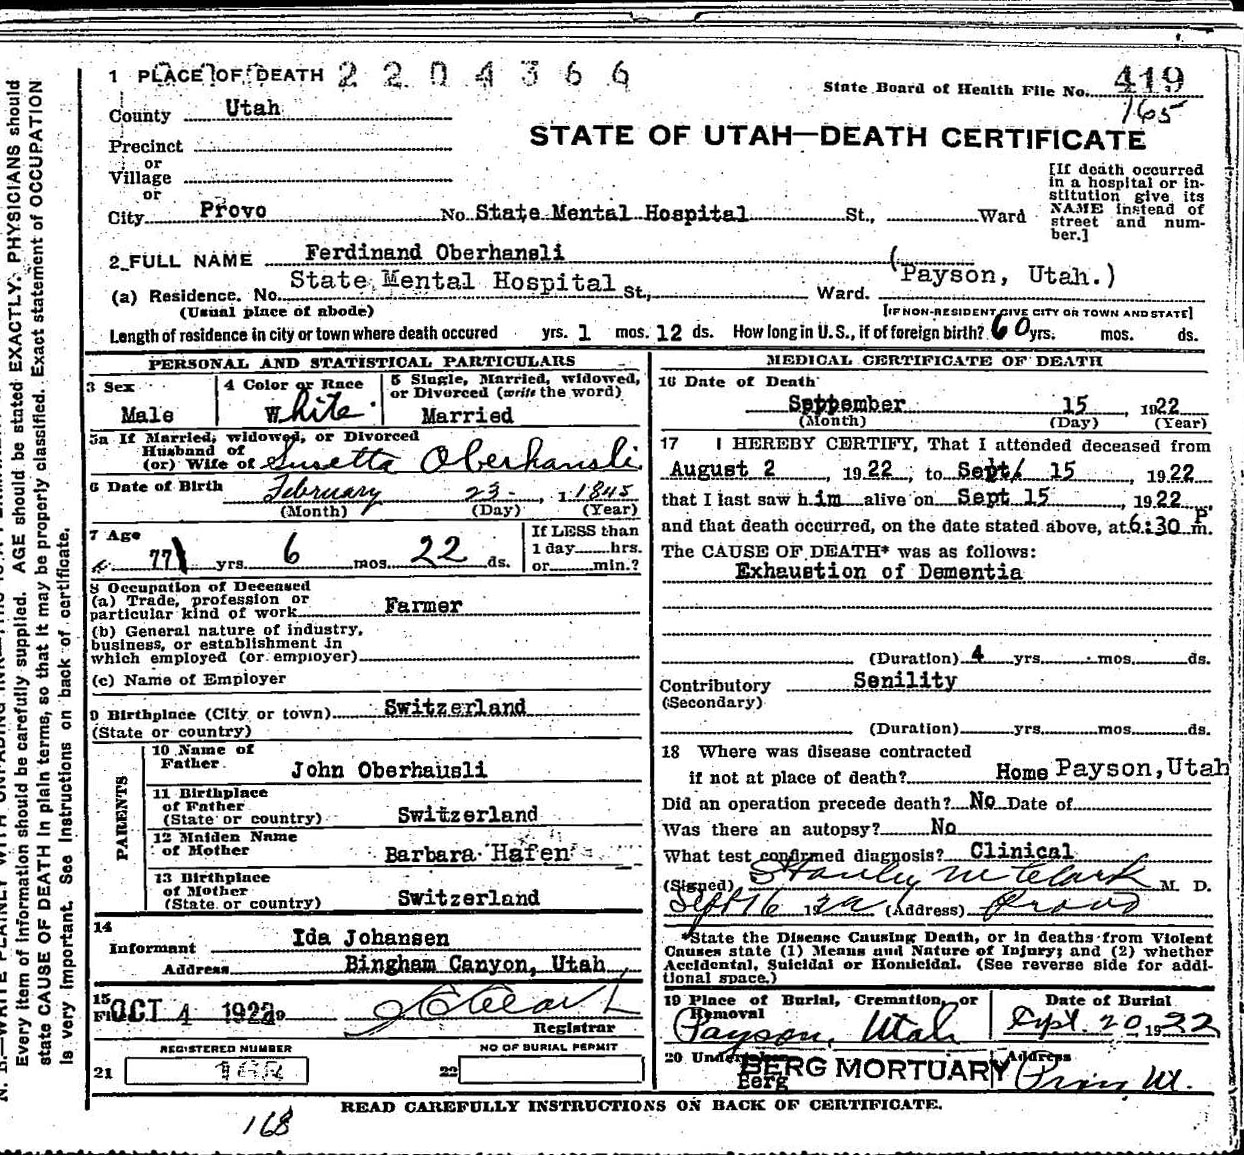 1 PLACE OF DEATH 2204366
State Board of Health File No. 419
165
County Utah
STATE OF UTAH—DEATH CERTIFICATE
Precinct
or
Village
or
City Provo No. State Mental Hospital St., Ward
[If death occurred
in a hospital or in-
stitution give its
NAME instead of
street and num-
ber.]
2 FULL NAME Ferdinand Oberhansli
(a) Residence. No. State Mental Hospital St., Ward. (Payson, Utah.)
(Usual place of abode) [IF NON-RESIDENT GIVE CITY OR TOWN AND STATE]
Length of residence in city or town where death occured yrs. 1 mos. 12 ds. How long in U.S., if of foreign birth? 60 yrs. mos. ds.
PERSONAL AND STATISTICAL PARTICULARS
3 Sex
Male
4 Color or Race
White
5 Single, Married, widowed,
or Divorced (write the word)
Married
5a If Married, widowed, or Divorced
Husband of
(or) Wife of Susetta Oberhansli
6 Date of Birth February 23 1845
(Month) (Day) (Year)
7 Age
77 yrs 6 mos. 22 ds.
If LESS than
1 day hrs.
or min.?
8 Occupation of Deceased
(a) Trade, profession or
particular kind of work Farmer
(b) General nature of industry,
business, or establishment in
which employed (or employer)
(c) Name of Employer
9 Birthplace (City or town) Switzerland
(State or country)
PARENTS
10 Name of
Father John Oberhausli
11 Birthplace
of Father
(State or country) Switzerland
12 Maiden Name
of Mother Barbara Hafen
13 Birthplace
of Mother
(State or country) Switzerland
14
Informant Ida Johansen
Address Bingham Canyon, Utah
15
OCT 4 1922
Registrar
REGISTERED NUMBER
21
NO OF BURIAL PERMIT
22
MEDICAL CERTIFICATE OF DEATH
16 Date of Death
September 15, 1922
(Month) (Day) (Year)
17 I HEREBY CERTIFY, That I attended deceased from
August 2 1922, to Sept. 15 1922
that I last saw him alive on Sept 15, 1922,
and that death occurred, on the date stated above, at 6:30 P. m.
The CAUSE OF DEATH* was as follows:
Exhaustion of Dementia
(Duration) 4 yrs. mos. ds.
Contributory Senility
(Secondary)
(Duration) yrs. mos. ds.
18 Where was disease contracted
if not at place of death? Home Payson, Utah
Did an operation precede death? No Date of
Was there an autopsy? No
What test confirmed diagnosis? Clinical
(Signed) Stanley M Clark M. D.
Sept 16 1922 (Address) Provo
*State the Disease Causing Death, or in deaths from Violent
Causes state (1) Means and Nature of Injury; and (2) whether
Accidental, Suicidal or Homicidal. (See reverse side for addi-
tional space.)
19 Place of Burial, Cremation, or
Removal
Payson, Utah
Date of Burial
Sept. 20, 1922
20 Undertaker BERG MORTUARY
Berg
Address
READ CAREFULLY INSTRUCTIONS ON BACK OF CERTIFICATE.
168
Every item of information should be carefully supplied. AGE should be stated EXACTLY. PHYSICIANS should
state CAUSE OF DEATH in plain terms, so that it may be properly classified. Exact statement of OCCUPATION
is very important. See instructions on back of certificate.